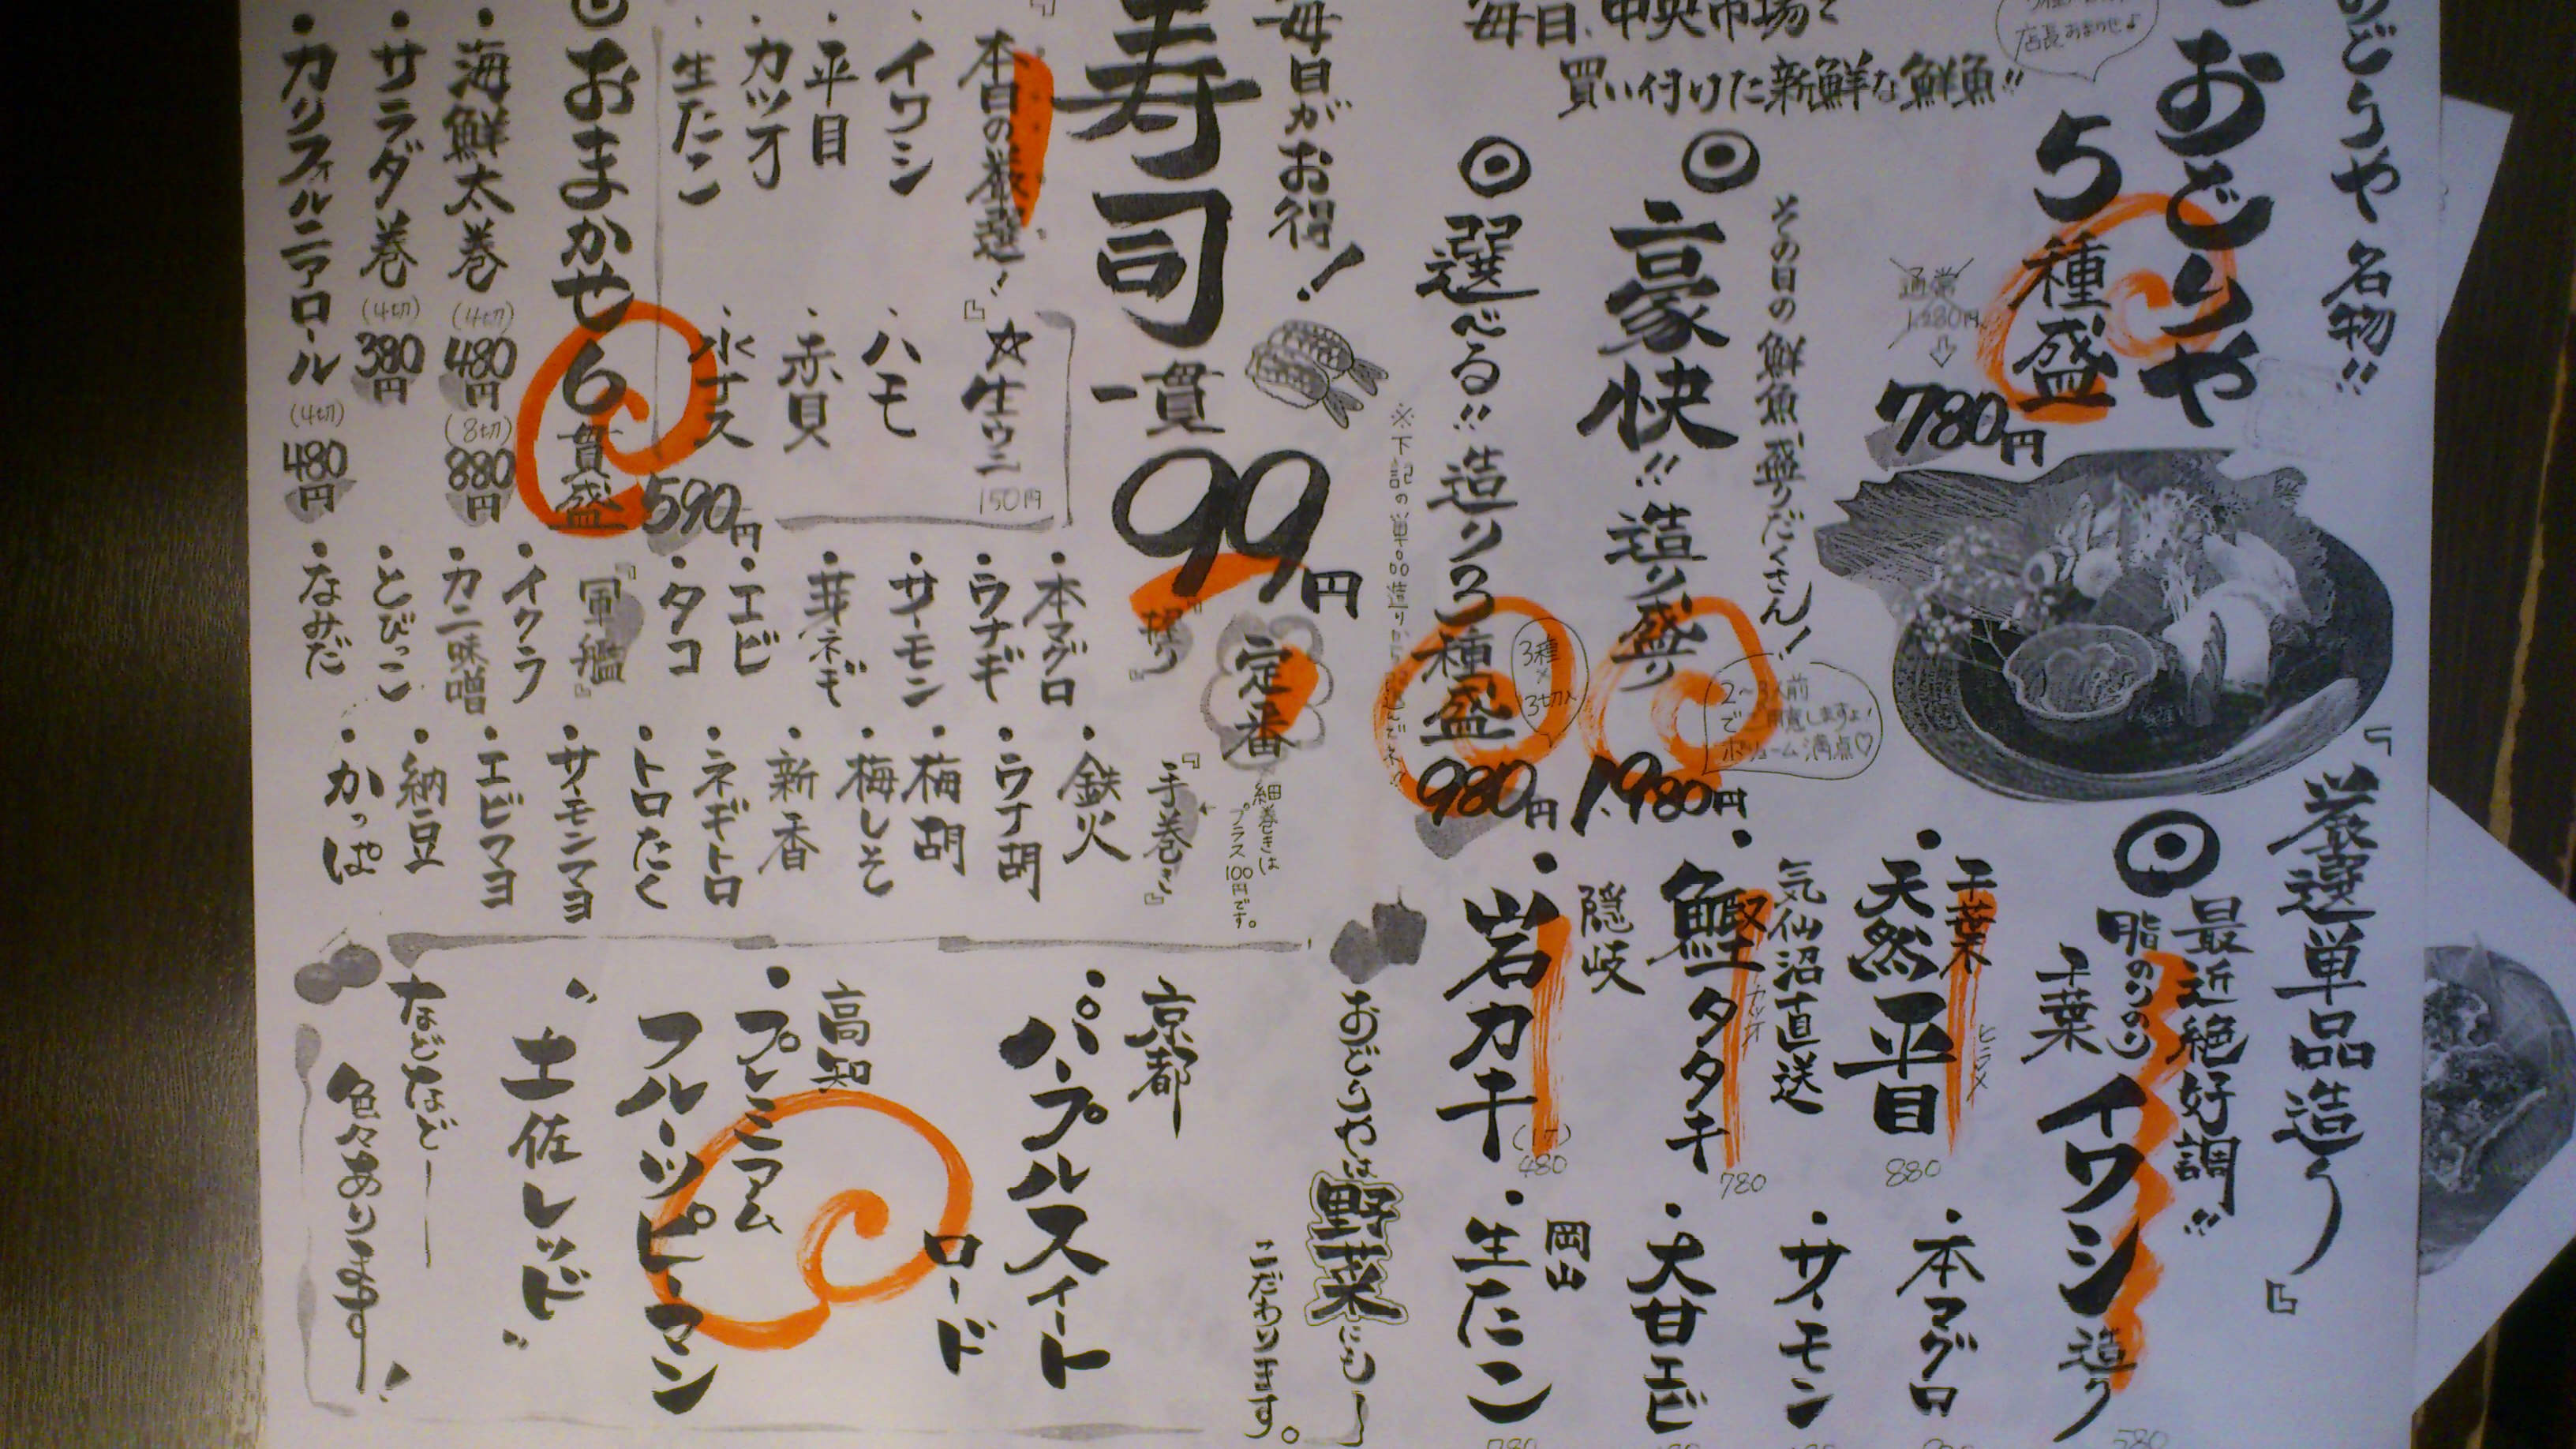 のどりや名物!!
おどりや
5種盛
通常
1,280円
780円
店長おまかせ♪
毎日、中央市場で
買い付けた新鮮な鮮魚!!
その日の鮮魚、盛りだくさん!
◎豪快!!造り盛り
1,980円
2〜3人前
でご用意しますよ!
ボリューム満点♡
◎選べる!!造り3種盛
3種
×
3切入
980円
『厳選単品造り』
◎最近絶好調!!
脂のりのり
千葉
イワシ造り
580
千葉
・天然平目
ヒラメ
880
・本マグロ
気仙沼直送
・鰹タタキ
カツオ
780
・サーモン
・大甘エビ
隠岐
・岩カキ
(1ケ)
480
岡山
・生タコ
780
毎日がお得!
寿司
一貫
99円
『本日の厳選!』
☆生ウニ
150円
・イワシ
・平目
・カツオ
・生たこ
・ハモ
・赤貝
・水ナス
定番
『握り』
・本マグロ
・ウナギ
・サーモン
・芽ネギ
・エビ
・タコ
『軍艦』
・イクラ
・カニ味噌
・とびっこ
・なみだ
『手巻き』
細巻きは
プラス100円です。
・鉄火
・ウナ胡
・梅胡
・梅しそ
・新香
・ネギトロ
・トロたく
・サーモンマヨ
・エビマヨ
・納豆
・かっぱ
◎おまかせ6貫盛
590円
・海鮮太巻
(4切)
480円
(8切)
880円
・サラダ巻
(4切)
380円
・カリフォルニアロール
(4切)
480円
おどりやは野菜にも
こだわります。
京都
・パープルスイート
ロード
高知
・プレミアム
フルーツピーマン
"土佐レッド"
などなど―
色々あります!